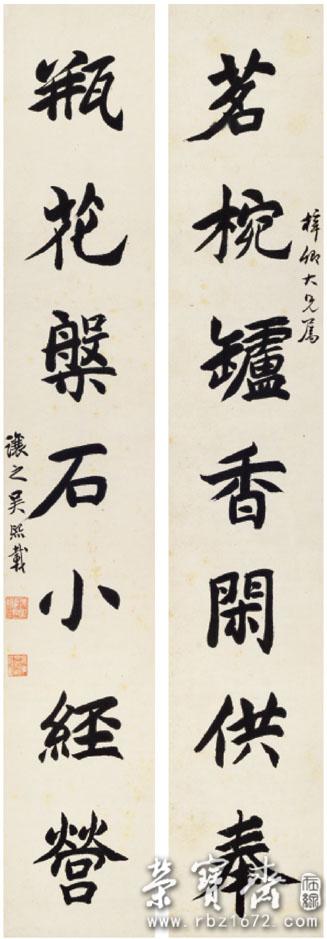 茗椀罏香閑供奉
梓卿大兄屬
瓶花槃石小經營
讓之吳熙載
榮寶齋
在線
www.rbz1672.com